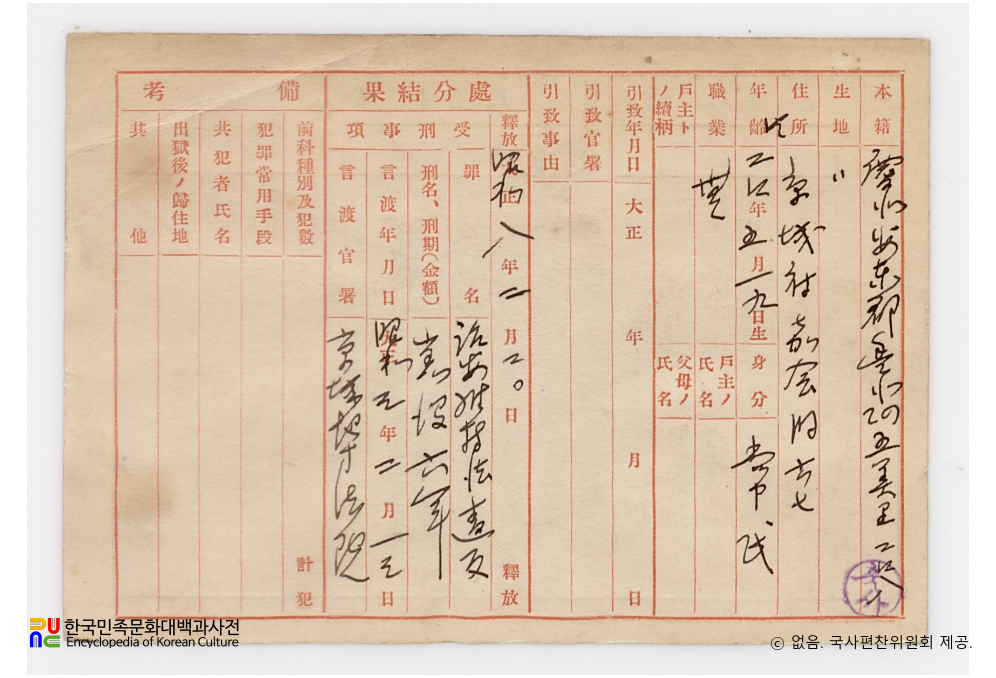 本籍 慶北安東郡豊北面五美里二
生地 〃
住所 京城 府 嘉会洞 六七
年齡 年五月一九日生
身分 常民
職業 無
戸主ノ氏名
戸主トノ續柄
父母ノ氏名
引致年月日 大正 年 月 日
引致官署
引致事由
處分結果
釋放 昭和八年二月二〇日 釋放
受刑事項
罪名 治安維持法違反
刑名、刑期(金額) 懲役六年
言渡年月日 昭和三年二月一三日
言渡官署 京城地方法院
備考
前科種別及犯數 計 犯
犯罪常用手段
共犯者氏名
出獄後ノ歸住地
其他
한국민족문화대백과사전
Encyclopedia of Korean Culture
© 없음. 국사편찬위원회 제공.